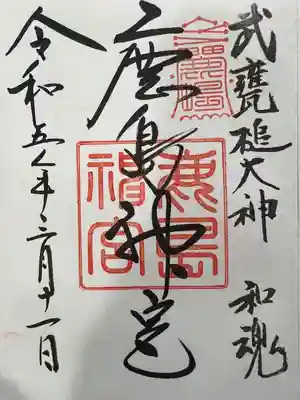 武甕槌大神 和魂
鹿島神宮
鹿島神宮
令和五年三月十一日